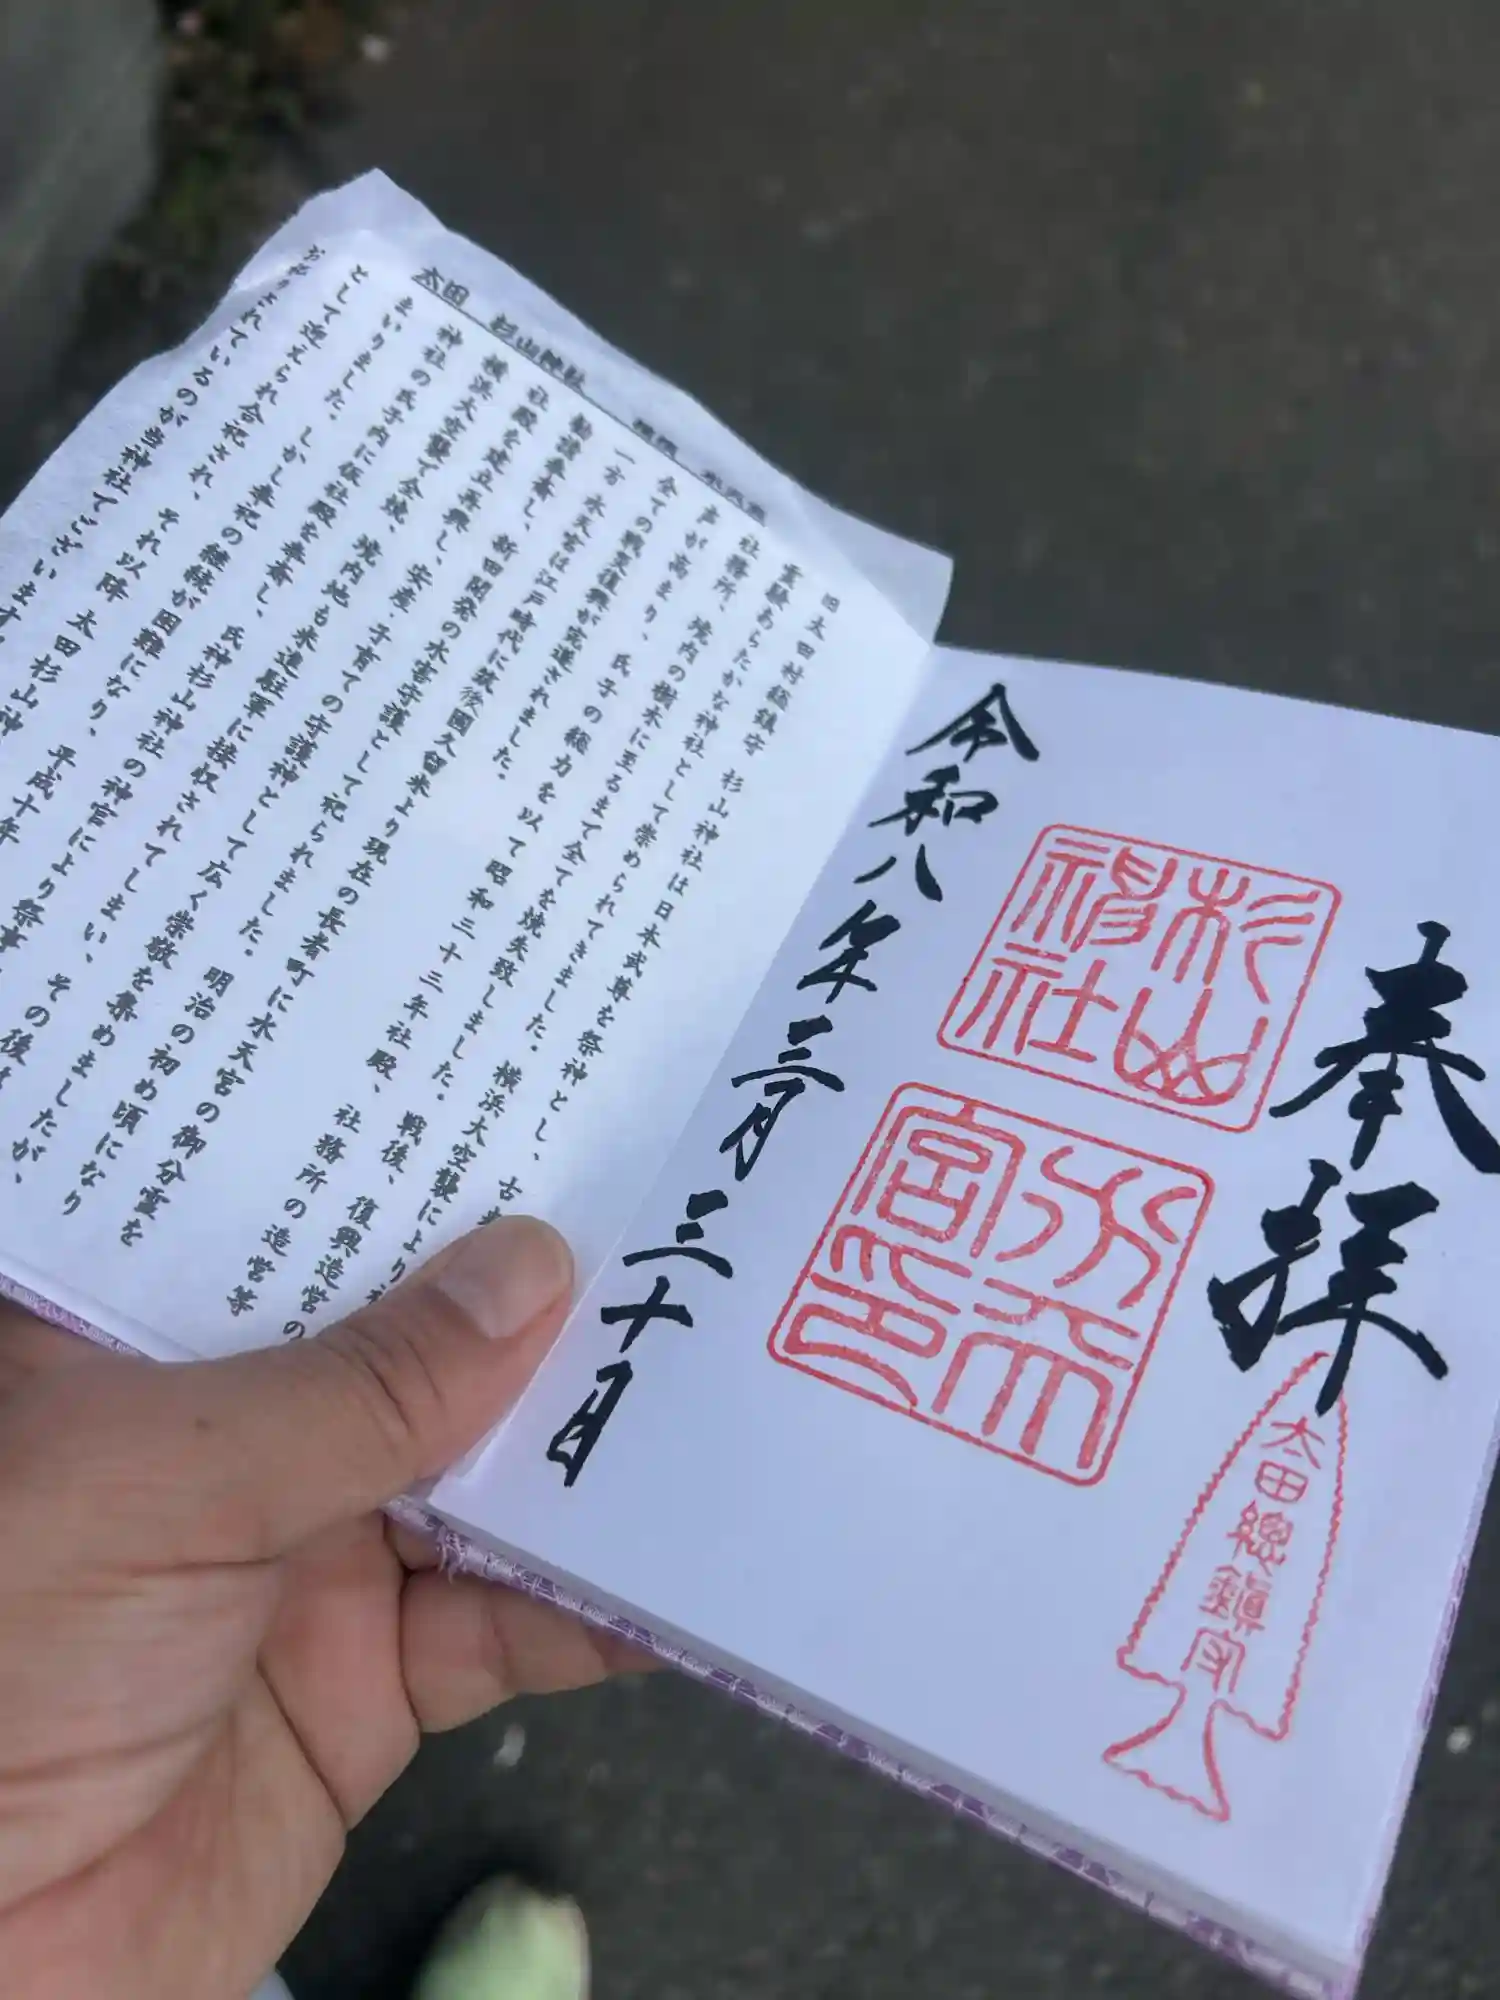 太田 杉山神社 横濱 水天宮
旧太田村総鎮守 杉山神社は日本武尊を祭神とし、古
霊験あらたかな神社として崇められてきました。横浜大空襲により社
社務所、境内の樹木に至るまで全てを焼失致しました。戦後、復興造営の
声が高まり、氏子の総力を以て昭和三十三年社殿、社務所の造営等
全ての戦災復興が完遂されました。
一方 水天宮は江戸時代に筑後国久留米より現在の長者町に水天宮の御分霊を
勧請奉斎し、新田開発の水害守護として祀られました。明治の初め頃になり
社殿を建立再興し、安産・子育ての守護神として広く崇敬を集めましたが、
横浜大空襲で全焼、境内地も米進駐軍に接収されてしまい、その後は
神社の氏子内に仮社殿を奉斎し、氏神杉山神社の神官により祭事
まいりました。しかし奉祀の継続が困難になり、平成十年
として迎えられ合祀され、それ以降 太田杉山神
お祀りされているのが当神社でございます
奉拝
杉山神社
水天宮印
太田總鎮守
令和八年三月三十日